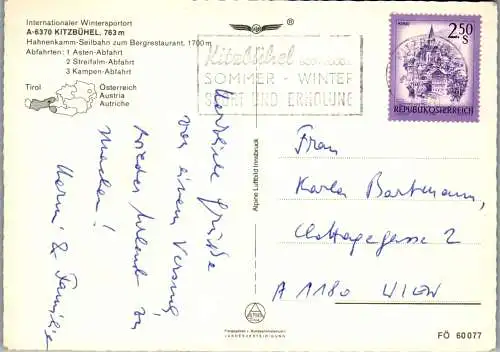 Internationaler Wintersportort
A-6370 KITZBÜHEL, 763 m
Hahnenkamm-Seilbahn zum Bergrestaurant, 1700 m
Abfahrten: 1 Asten-Abfahrt
2 Streifalm-Abfahrt
3 Kampen-Abfahrt
Tirol
Österreich
Austria
Autriche
Kitzbühel
SOMMER - WINTER
SPORT UND ERHOLUNG
2.50 S
REPUBLIK ÖSTERREICH
Herzliche Grüße
von einem Versuch
wieder Urlaub zu
machen!
& Familie
Alpine Luftbild Innsbruck
Frau
Karla Bartmann,
2
A 1180 WIEN
LANDESVERTEIDIGUNG
FÖ 60 077